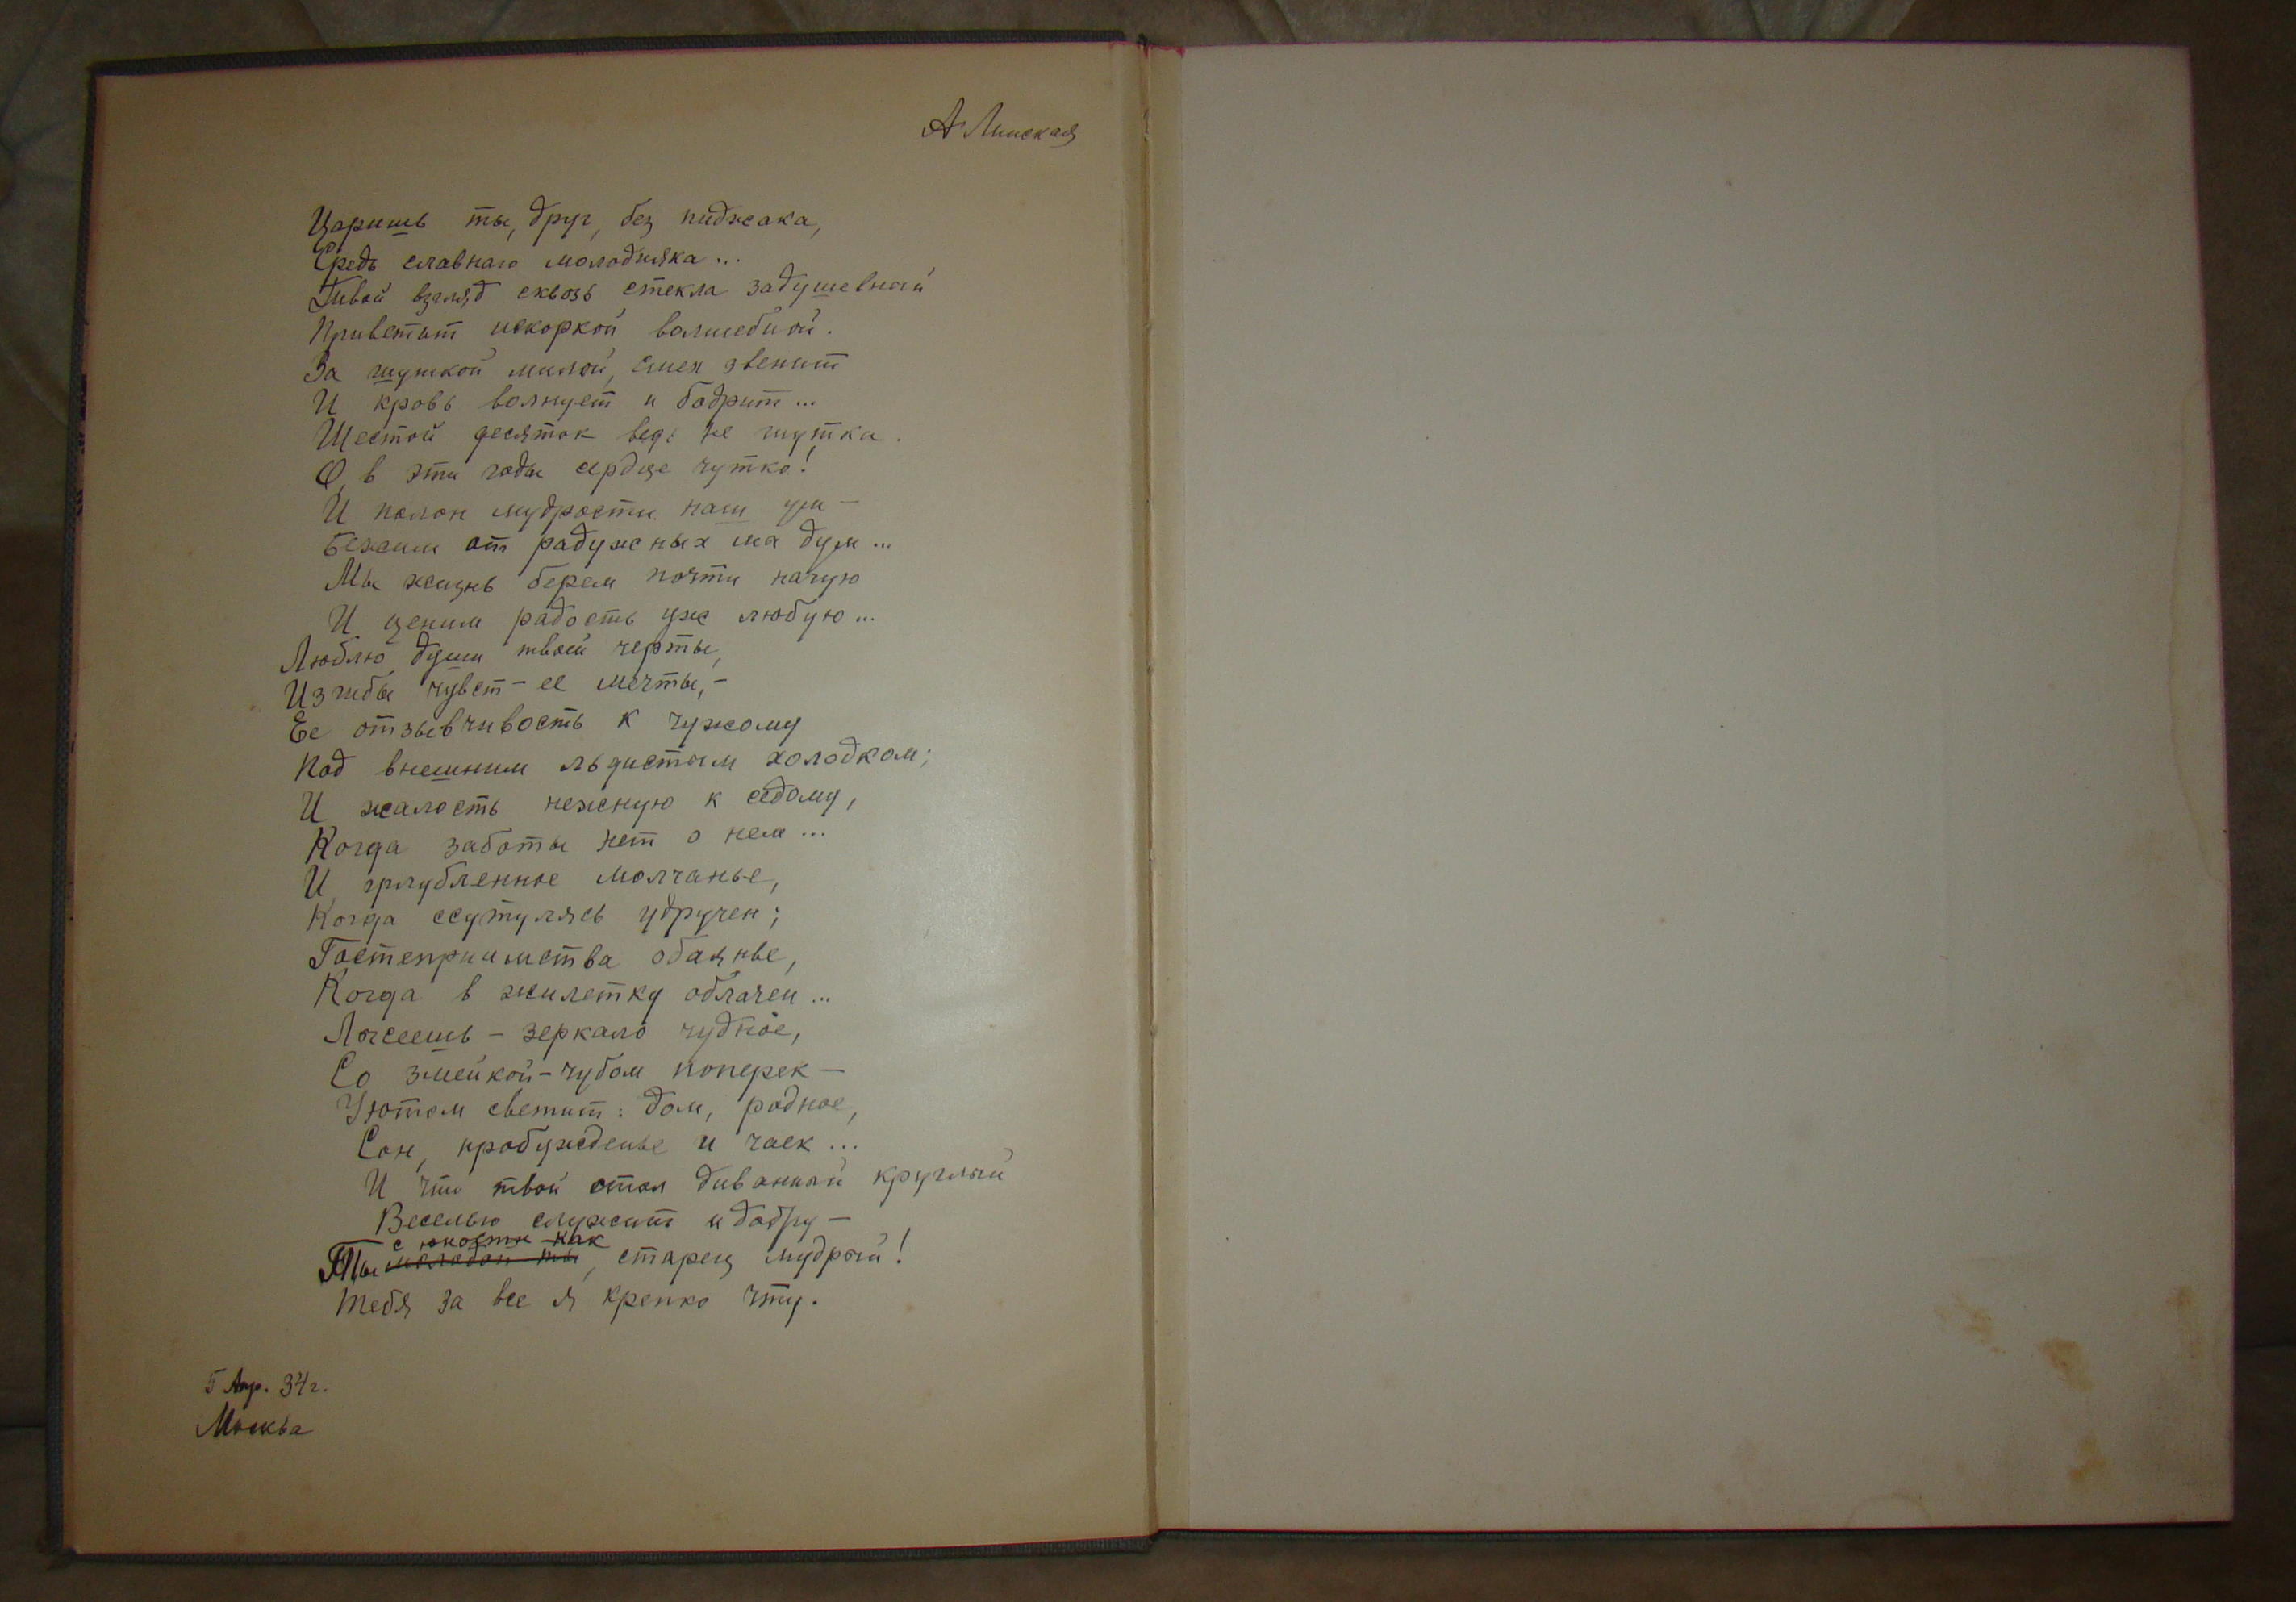 А Линская
Царишь ты, друг, без пиджака,
Средь славнаго молодняка...
Твой взгляд сквозь стекла задушевный
Приветит искоркой волшебной.
За шуткой милой, смех звенит
И кровь волнует и бодрит...
Шестой десяток ведь не шутка.
О, в эти годы сердце чутко!
И полон мудрости наш ум —
Бежим от радужных мы дум...
Мы жизнь берем почти нагую
И ценим радость уж любую...
Люблю души твоей черты,
Изгибы чувст - ее мечты, -
Ее отзывчивость к чужому
Под внешним льдистым холодком;
И жалость нежную к седому,
Когда заботы нет о нем...
И углубленное молчанье,
Когда ссутулясь удручен;
Гостеприимства обаянье,
Когда в жилетку облачен...
Лысеешь - зеркало чудное,
Со змейкой-чубом поперек —
Уютом светит: дом, родное,
Сон, пробужденье и чаек...
И что твой стол диванный круглый
Веселью служит и добру —
с юности как
Ты молодой ты, старец мудрый!
Тебя за все я крепко чту.
5 Апр. 34г.
Москва